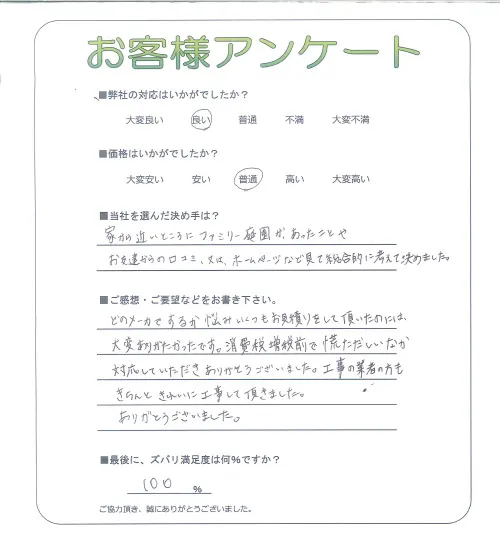 お客様アンケート
■弊社の対応はいかがでしたか?
大変良い 良い 普通 不満 大変不満
■価格はいかがでしたか?
大変安い 安い 普通 高い 大変高い
■当社を選んだ決め手は?
家から近いところにファミリー庭園があったことや
お友達からの口コミ、又は、ホームページなど見て総合的に考えて決めました。
■ご感想・ご要望などをお書き下さい。
どのメーカでするか悩みいくつもお見積りをして頂いたのには、
大変ありがたかったです。消費税増税前で慌ただしいなか
対応していただきありがとうございました。工事の業者の方も
きちんときれいに工事して頂きました。
ありがとうございました。
■最後に、ズバリ満足度は何%ですか?
100 %
ご協力頂き、誠にありがとうございました。